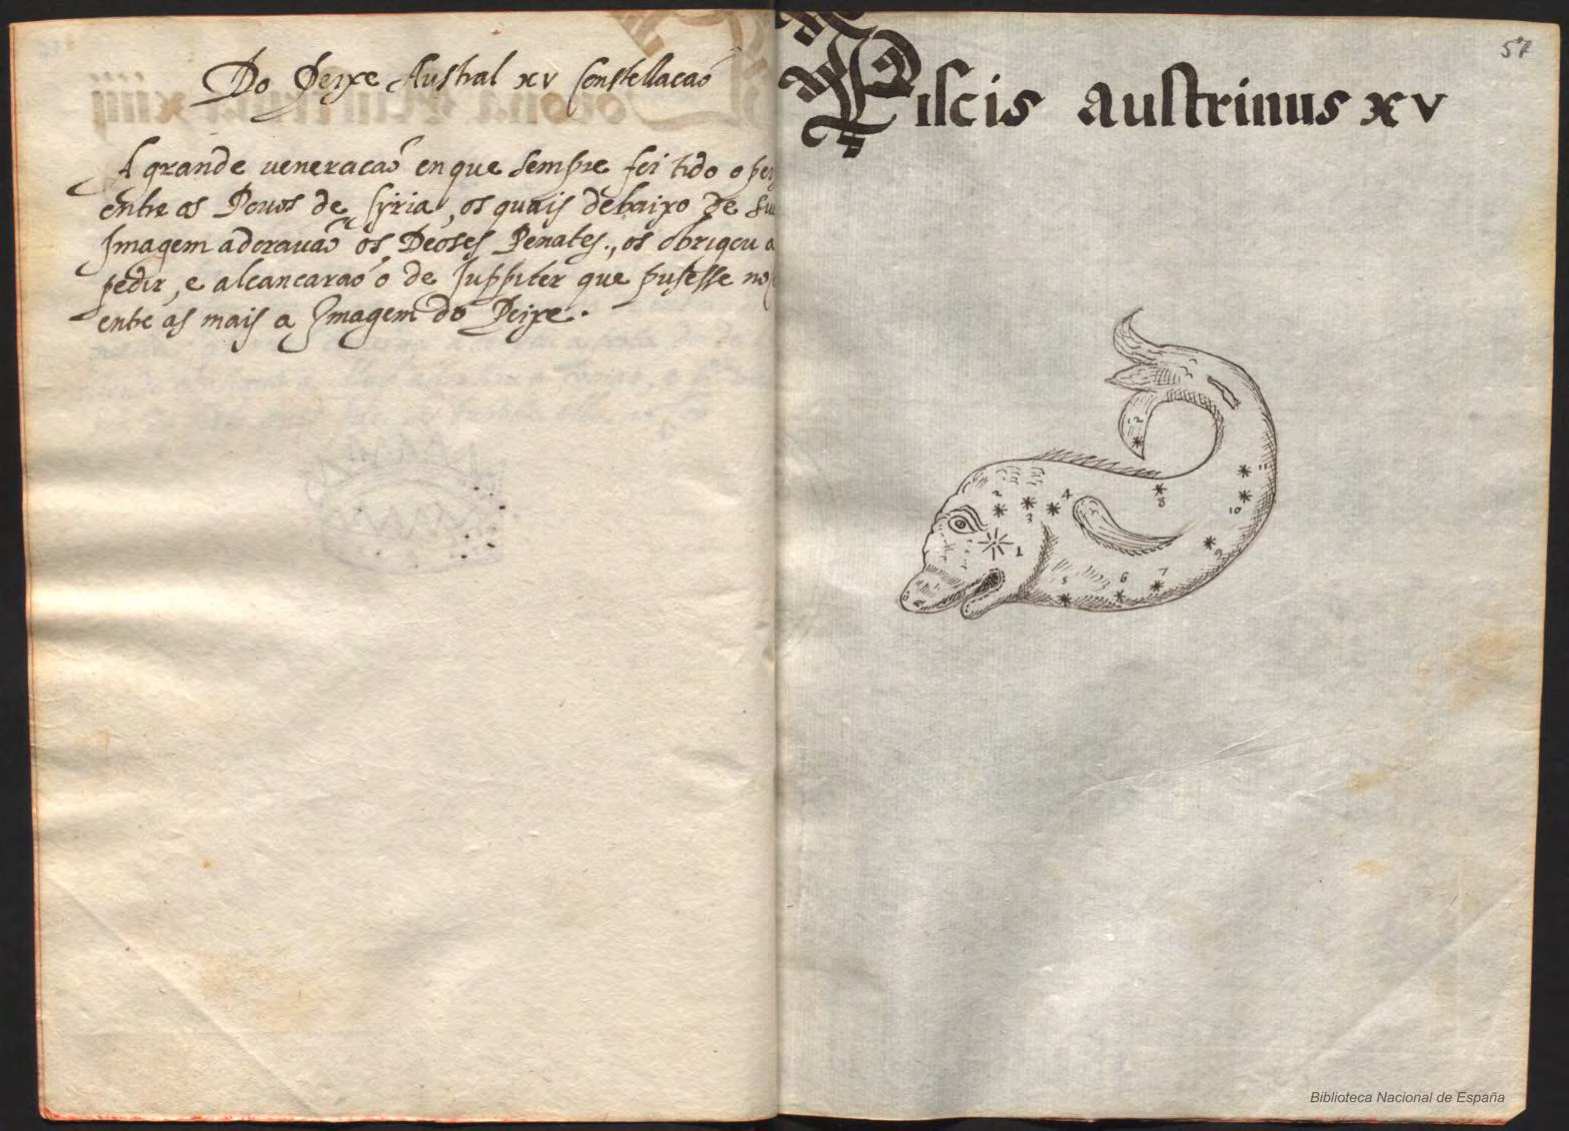 Do Peixe Austral xv Constellacaõ
A grande veneracaõ en que sempre foi tido o pei
entre os Povos de Syria, os quais debaixo de su
Imagem adoravaõ os Deoses Penates., os obrigou a
pedir, e alcancaraõ o de Juppiter que pusesse no
entre as mais a Imagem do Peixe.
57
Piscis austrinus xv
1
2
3
4
5
6
7
8
9
10
11
12
Biblioteca Nacional de España